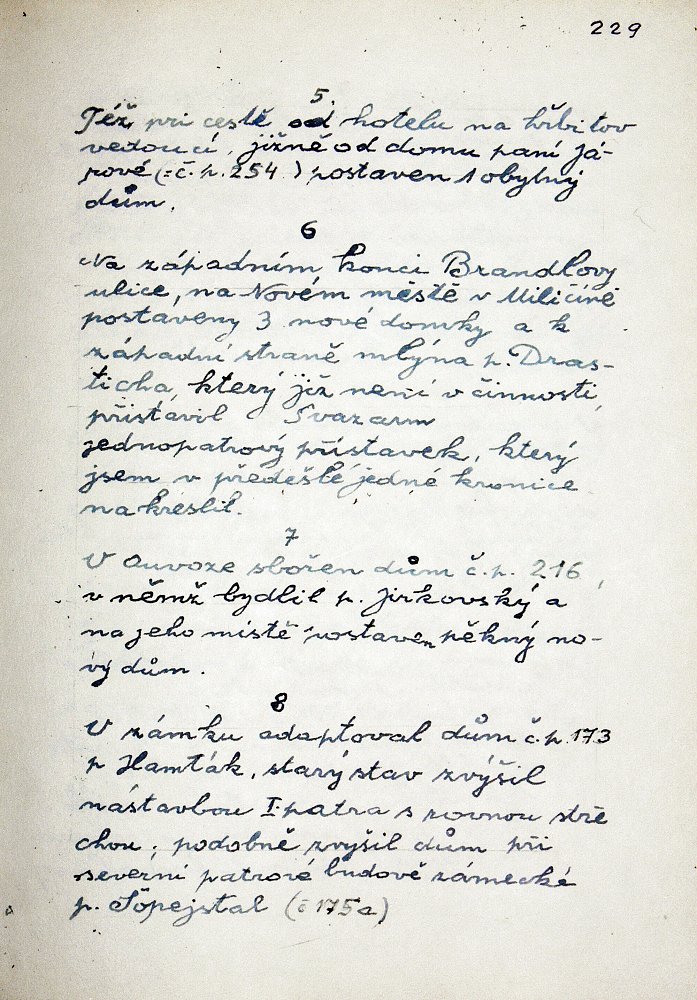 229
5.
Též při cestě od hotelu na hřbitov
vedoucí, jižně od domu paní Já-
rové (:č.p. 254.) postaven 1 obylný
dům.
6
Na západním konci Brandlovy
ulice, na Novém městě v Miličíně
postaveny 3 nové domky a k
západní straně mlýna p. Dras-
ticha, který již není v činnosti,
přistavil Svazarm
jednopatrový přístavek, který
jsem v předešlé jedné kronice
nakreslil.
7
V Ouvoze sbořen dům č.p. 216,
v němž bydlil p. Jirkovský a
na jeho místě postaven pěkný no-
vý dům.
8
V zámku adaptoval dům č.p. 173
p Hamták, starý stav zvýšil
nástavbou I. patra s rovnou stře
chou; podobně zvýšil dům při
severní patrové budově zámecké
p. (č 175a)